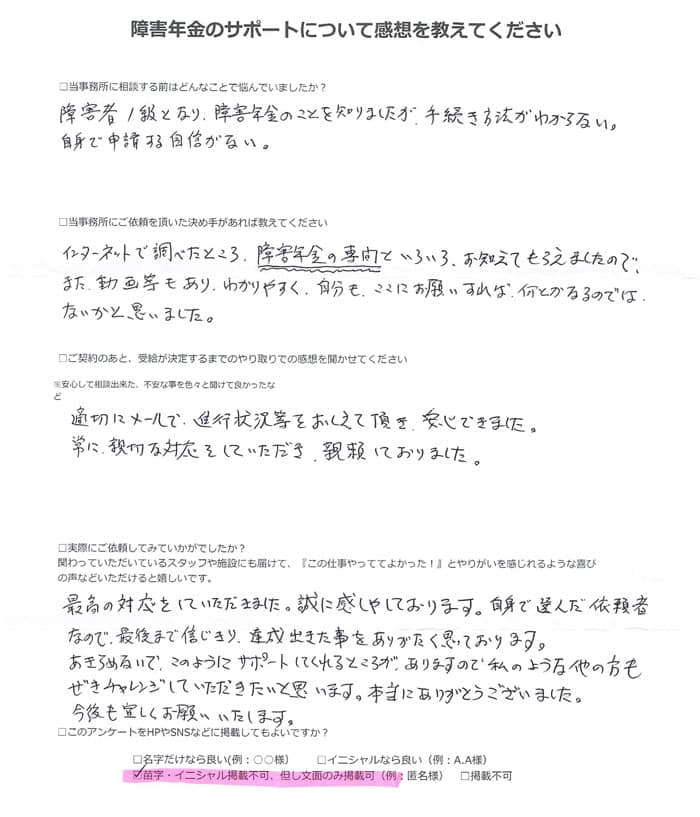 障害年金のサポートについて感想を教えてください
□当事務所に相談する前はどんなことで悩んでいましたか？
障害者1級となり、障害年金のことを知りましたが、手続き方法がわからない。
自身で申請する自信がない。
□当事務所にご依頼を頂いた決め手があれば教えてください
インターネットで調べたところ、障害年金の専門といろいろ、お知えてもらえましたので、
また、動画等もあり、わかりやすく、自分も、ここにお願いすれば、何とかなるのでは、
ないかと思いました。
□ご契約のあと、受給が決定するまでのやり取りでの感想を聞かせてください
※安心して相談出来た、不安な事を色々と聞けて良かったな
ど
適切にメールで、進行状況等をおしえて頂き、安心できました。
常に、親切な対応をしていただき、親頼しておりました。
□実際にご依頼してみていかがでしたか？
関わっていただいているスタッフや施設にも届けて、『この仕事やっててよかった！』とやりがいを感じれるような喜び
の声などいただけると嬉しいです。
最高の対応をしていただきました。誠に感しやしております。自身で選んだ依頼者
なので、最後まで信じきり、達成出きた事をありがたく思っております。
あきらめないで、このようにサポートしてくれるところが、ありますので私のような他の方も
ぜきチャレンジしていただきたいと思います。本当にありがとうございました。
今後も宜しくお願いいたします。
□このアンケートをHPやSNSなどに掲載してもよいですか？
□名字だけなら良い(例：○○様）　□イニシャルなら良い（例：A.A様）
☑苗字・イニシャル掲載不可、但し文面のみ掲載可（例：匿名様）　□掲載不可